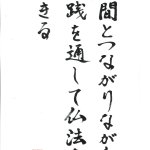 間とつながりながら
践を通して仏法を
きる